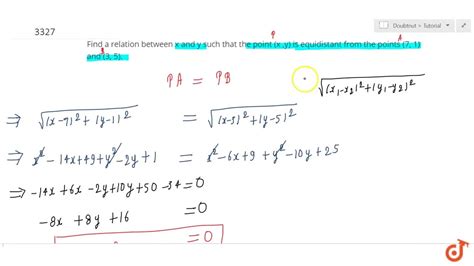 3327
Doubtnut > Tutorial
P A
Find a relation between x and y such that the point (x ,y) is equidistant from the points (7, 1)
B
and (3, 5).
PA = PB
√(x₁-x₂)²+(y₁-y₂)²
⇒ √(x-7)²+(y-1)² = √(x-3)²+(y-5)²
⇒ x²-14x+49+y²-2y+1 = x²-6x+9+y²-10y+25
⇒ -14x+6x-2y+10y+50-34=0
-8x+8y+16 =0
=0